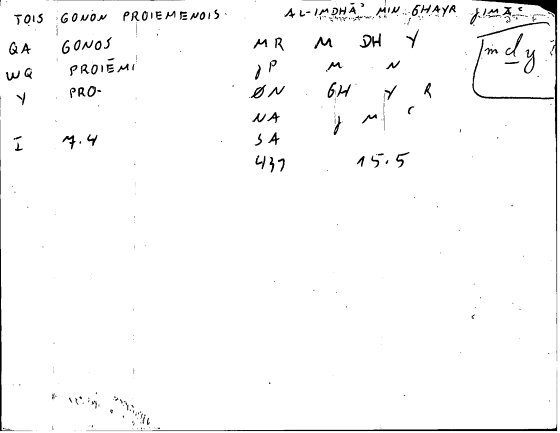 TOIS GONON PROIEMENOIS. AL-IMDHĀʾ MIN GHAYR JIMĀʿ
QA GONOS MR M DH Y mdy
WQ PROIĒMI JP M N
Y PRO- ØN GH Y R
NA J M ʿ
I 7.4 SA
437 15.5